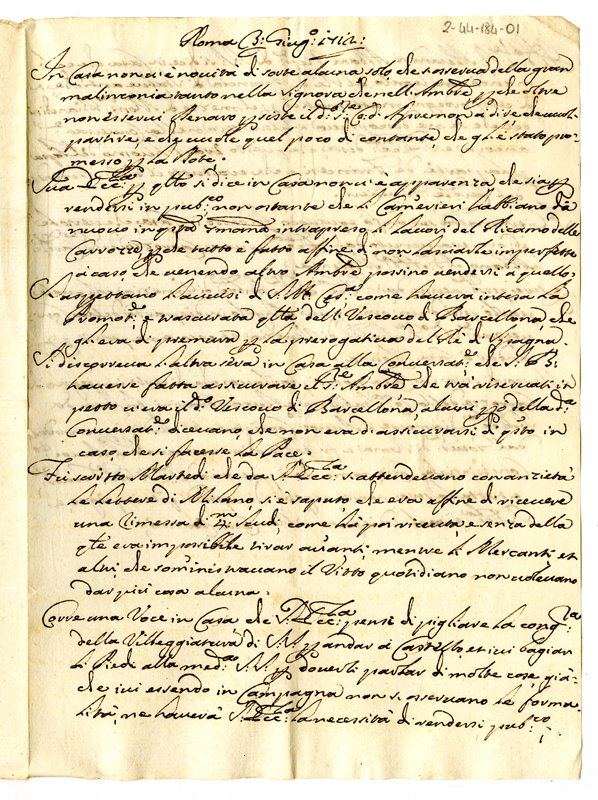 2-44-184-01
Roma 3: Giug.º 1712:
In Casa non ui è nouità di sorte alcuna solo che s'osserua della gran
malinconia tanto nella Signora che nell'Ambre p che oltre
non esserui denaro
partire, e che uuole quel poco di contante, che gl'è stato pro-
messo p la Dote.
Sua Ecc:za p qto si dice in Casa non ui è apparenza che sia p
rendersi in pub.co non ostante che li Camerieri habbiano di
nuouo in qsta smana intrapreso li lauori del Ricamo delle
Carrozze p che tutto è fatto affine di non lasciarle imperfette
a caso, che uenendo altro Ambre possino uendersi a quello,
S'aspettano li auuisi di S. M. Ces.a come haueua intesa la
Promot.e e trascurata qlla dell Vescouo di Barcellona, che
gli era di premura p la prerogatiua del Rè di Spagna.
Si discorreua l'altra sera in Casa alla Conuersat.e che S. B.
hauesse fatta assicurare il S.e Ambre che trà i riseruati in
petto ui era il d.º Vescouo di Barcellona, alcuni della d.a
Conuersat.e diceuano, che non era di assicurarsi di qsto in
caso che si facesse la Pace.
Fù scritto Martedi che da S. Ecc:za s'attendeuano con anzietà
le lettere di Milano, si è saputo, che era affine di riceuere
una rimessa di Scudi, come hà poi riceuuta, e senza della
qle era impossibile tirar auanti, mentre li Mercanti, et
altri, che somministrauano il Vitto quotidiano non uoleuano
dar più cosa alcuna.
Corre una Voce in Casa che S. Ecc:za pensi di pigliare la cong.ra
della Villeggiatura di S. S. p andar a Castello, et iui bagiar
li Piedi alla med.a S. S. p douerli parlar di molte cose, già-
che iui essendo in Campagna non s'osseruano le forma-
lità, ne hauerà S. Ecc:za la necessità di rendersi pub.co